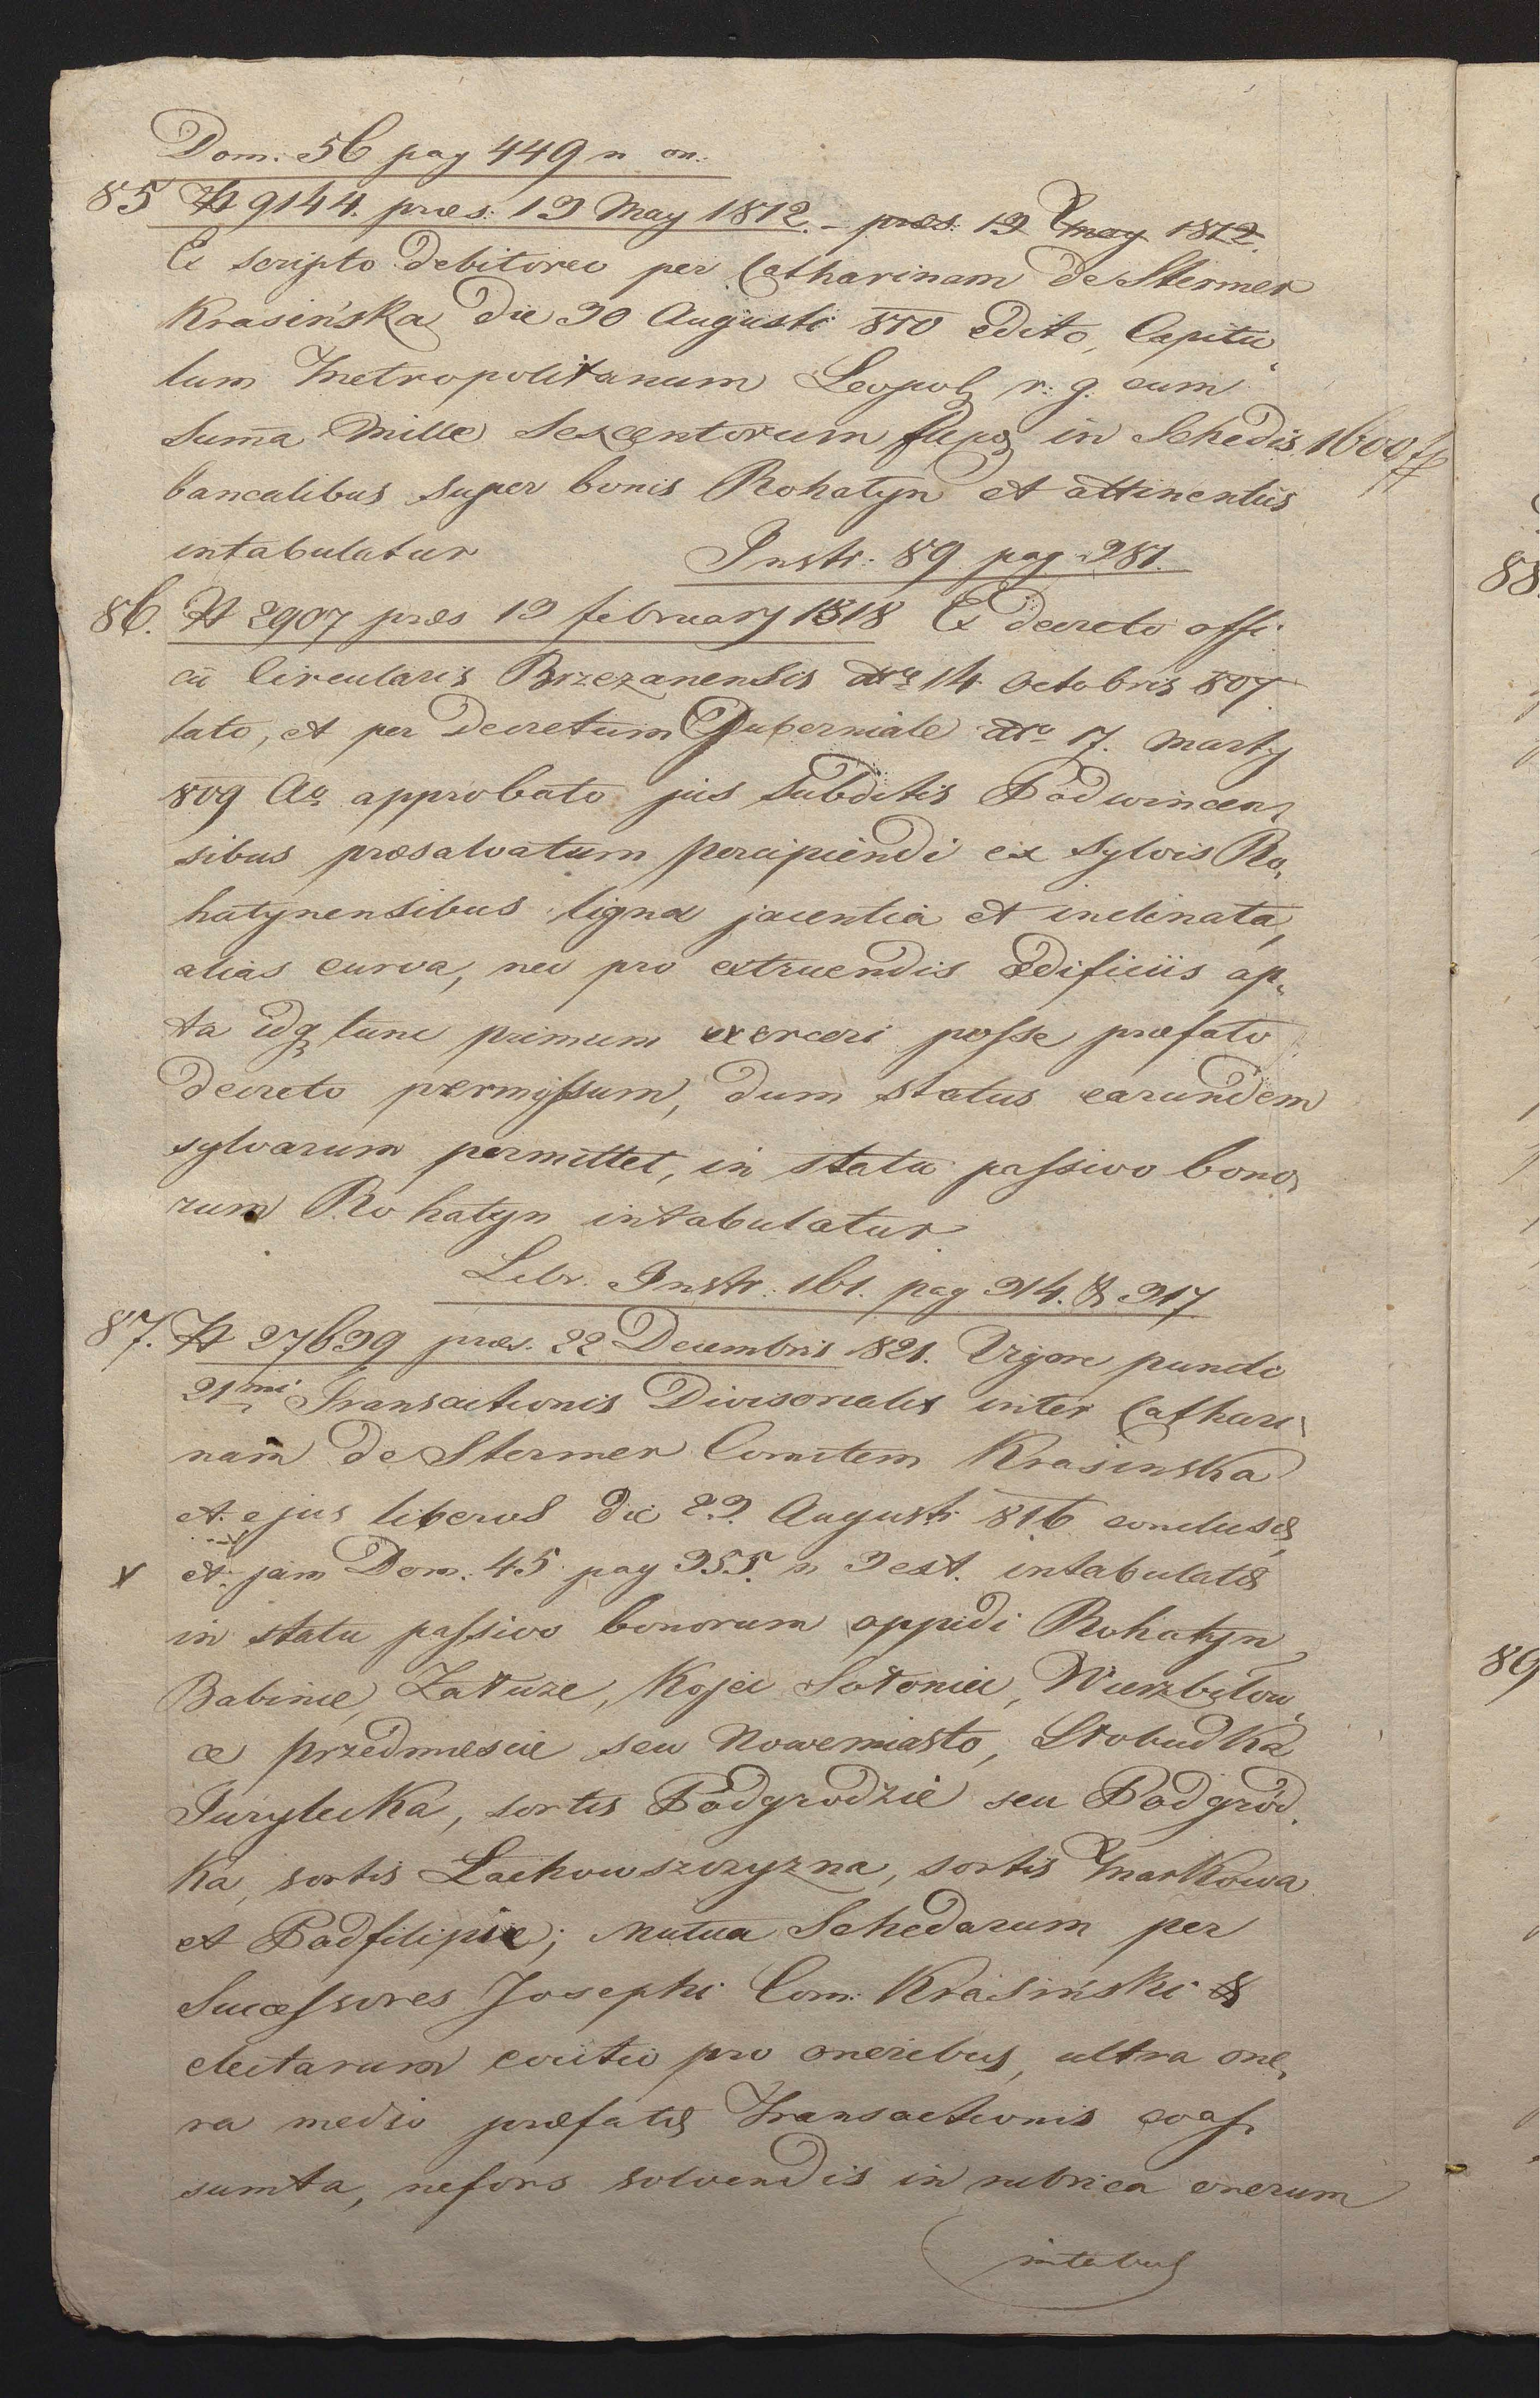 Dom: 56 pag 449 n on:
85 N 9144. præs: 13 May 1812. – præs: 13 May 1812.
Ex scripto debitoreo per Catharinam de Stermer
Krasińska die 30 Augusti 810 edito, Capitu„
lum Metropolitanum Leopol r: g. cum
Suma Mille Sexcentorum in Schedis 1600 fl
bancalibus super bonis Rohatyn et attinentiis
intabulatur Instr: 89 pag 281.
86. N 2907 præs 13 february 1818 Ex decreto offi
cii Circularis Brzezanensis dto 14 Octobris 807
lato, et per Decretum Guberniale dto 17. Marty
809 Ao approbato jus Subditis Podwincen„
sibus præsalvatum percipiendi ex Sylvis Ro„
hatynensibus ligna jacentia et inclinata,
alias curva, nec pro extruendis Ædificiis ap„
ta idq tunc primum exerceri posse præfato
decreto permissum, dum status earundem
sylvarum permittet, in statu passivo bono„
rum Rohatyn intabulatur
Libr. Instr: 161. pag 314. & 317
87. N 27639 præs. 22 Decembris 821. Vigore puncti
21mi Transactionis Divisorialis inter Cathari„
nam de Stermer Comitem Krasinska
et ejus liberos die 23. Augusti 816 conclusæ,
x et jam Dom. 45 pag 355. n 3 ext. intabulatæ
in statu passivo bonorum oppidi Rohatyn
Babinie, Załuze, Kojci Sołoniei, Wierzbiłow„
ce przedmiescie seu Nowemiasto, Słobudka
Jurydicka, sortis Podgrodzie seu Podgród„
ka, sortis Lackowszczyzna, sortis Markowa
et Podfilipie; Mutua Schedarum per
Successores Josephi Com: Krasiński &
electarum evictio pro oneribus, ultra one„
ra medio præfatæ Transactionis coas„
sumta, nefors solvendis in rubrica onerum
intabul